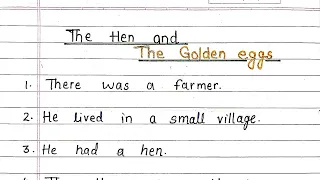 The Hen and
The Golden eggs
1. There was a farmer.
2. He lived in a small village.
3. He had a hen.